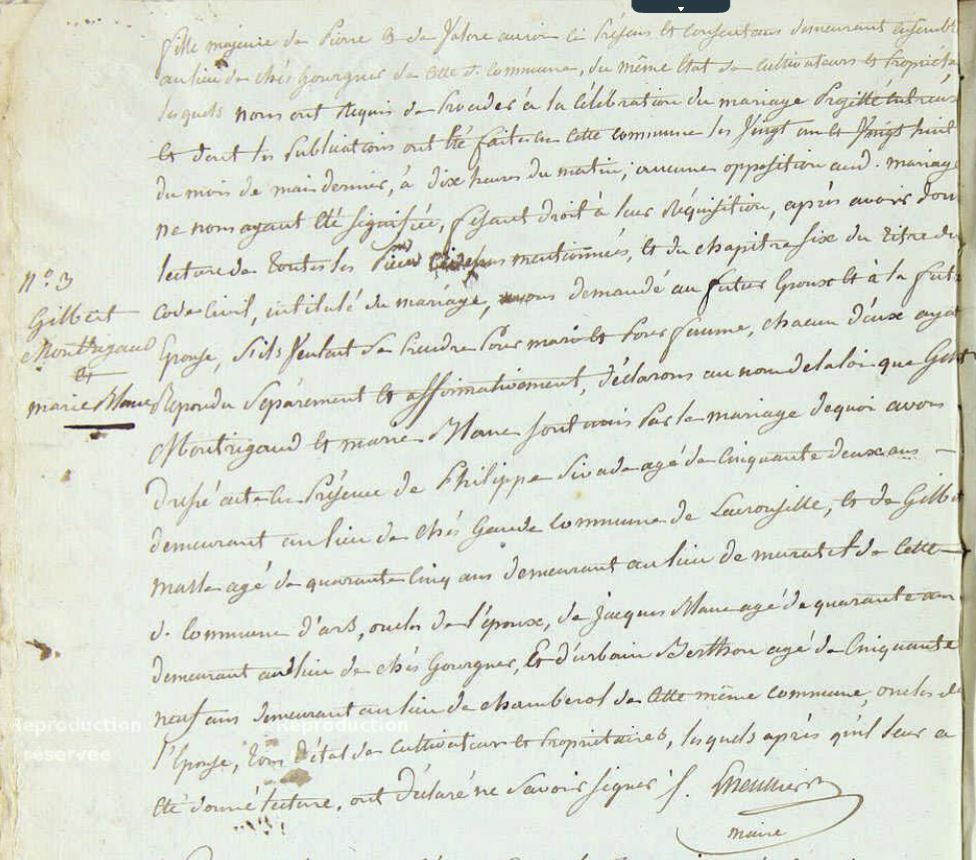 fille majeure de Pierre & de Valore auroi ci présens et consentans demeurant ensemble
au lieu de chés Gourgnes de cette d. commune, du même état de cultivateurs et propriéta
lesquels nous ont requis de proceder à la célébration du mariage Projetté entr'eux
et dont les Publications ont été faites en cette commune les Vingt un et Vingt huit
du mois de mai dernier, à dix heures du matin; aucune opposition aud. mariage
ne nous ayant été signifiée, fesant droit à leur Réquisition, après avoir don
lecture de toutes les Pièces mentionnées, et du chapitre six du titre du
code civil, intitulé du mariage, avons demandé au futur Epoux et à la futu
Epouse, s'ils veulent se prendre pour mari et pour femme, chacun d'eux ayant
Repondu séparément et affirmativement, déclarons au nom de la loi que Gilb
Montrigaud et marie Blanc sont unis par le mariage de quoi avons
Dressé acte en Présence de Philippe Sivade agé de cinquante deux ans
demeurant au lieu de chés Gaude commune de Lavrousille, et de Gilbe
masse agé de quarante cinq ans demeurant au lieu de muratel de cette
d. commune d'ars, oncles de l'époux, de Jacques Blanc agé de quarante ans
demeurant au lieu de chés Gourgnes, Et d'urbain Berthon agé de Cinquante
neuf ans demeurant au lieu de chamberol de cette même commune, oncles de
l'Epouse, tous d'état de cultivateurs et propriétaires, lesquels après qu'il leur a
été donné lecture, ont déclaré ne savoir signer
maire
n.º 3
Gilbert
Montrigaud
et
marie Blanc
Reproduction
réservée
Reproduction